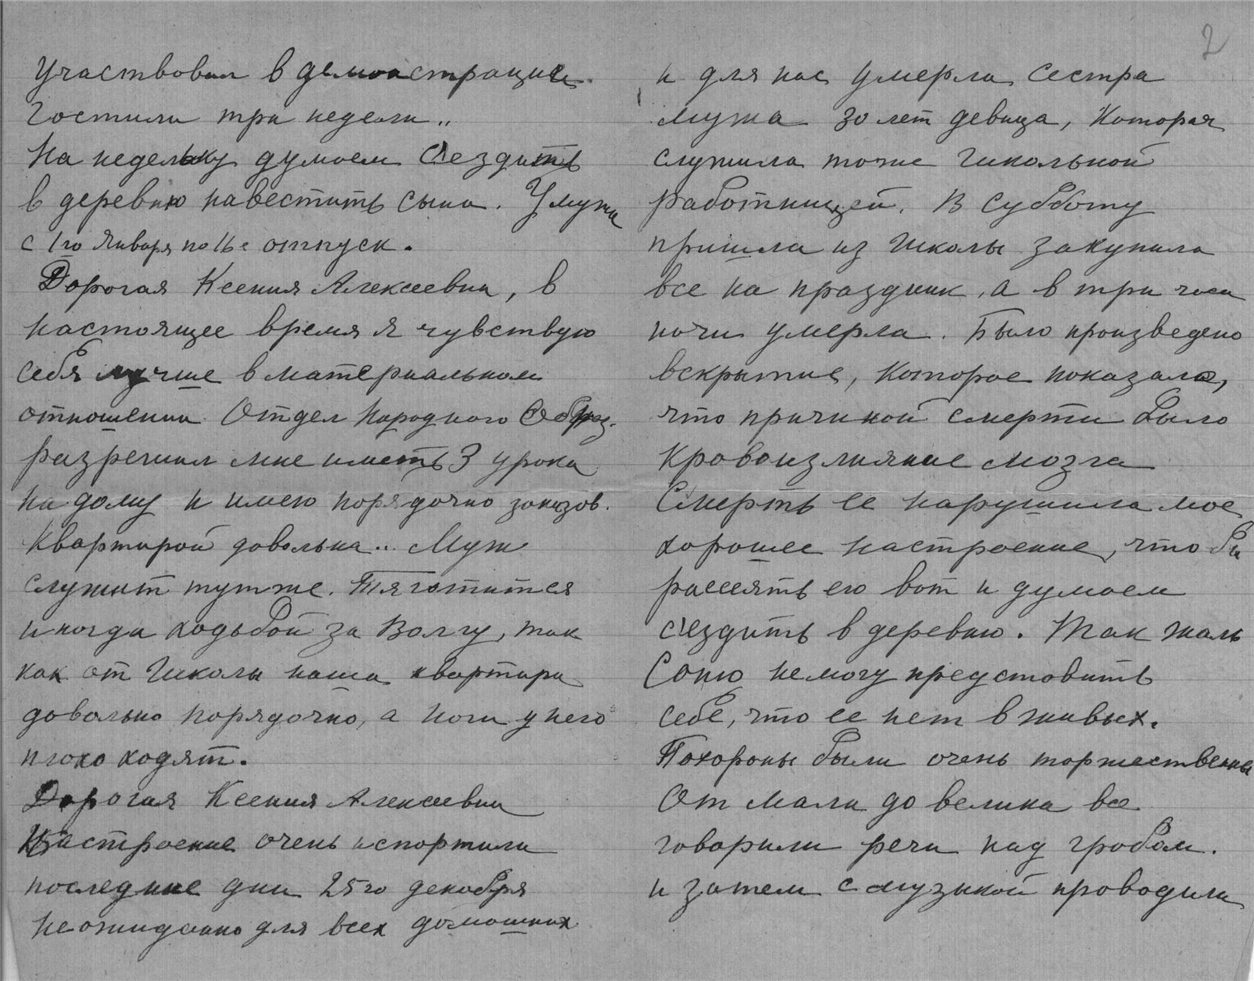 участвовал в демонстрации.
Гостили три недели..
На недельку думаем с'ездить
в деревню навестить сына. У мужа
с 1го Января по 16е отпуск.
Дорогая Ксения Алексеевна, в
настоящее время я чувствую
себя лучше в материальном
отношении. Отдел Народного Образ.
разрешил мне иметь 3 урока
на дому и имею порядочно заказов.
Квартирой довольна.. Муж
служит тут же. Тяготится
иногда ходьбой за Волгу, так
как от Школы наша квартира
довольно порядочно, а ноги у него
плохо ходят.
Дорогая Ксения Алексеевна
Настроение очень испортили
последние дни 25го декабря
неожиданно для всех домашних
2
и для нас умерла сестра
мужа 30 лет девица, которая
служила тоже Школьной
работницей. В Субботу
пришла из Школы закупила
все на праздник, а в три часа
ночи умерла. Было произведено
вскрытие, которое показало,
что причиной смерти было
кровоизлияние мозга
Смерть ее нарушила мое
хорошее настроение, что бы
рассеять его вот и думаем
с'ездить в деревню. Так жаль
Соню не могу представить
себе, что ее нет в живых.
Похороны были очень торжественны
От мала до велика все
говорили речи над гробом.
и затем с музыкой проводили